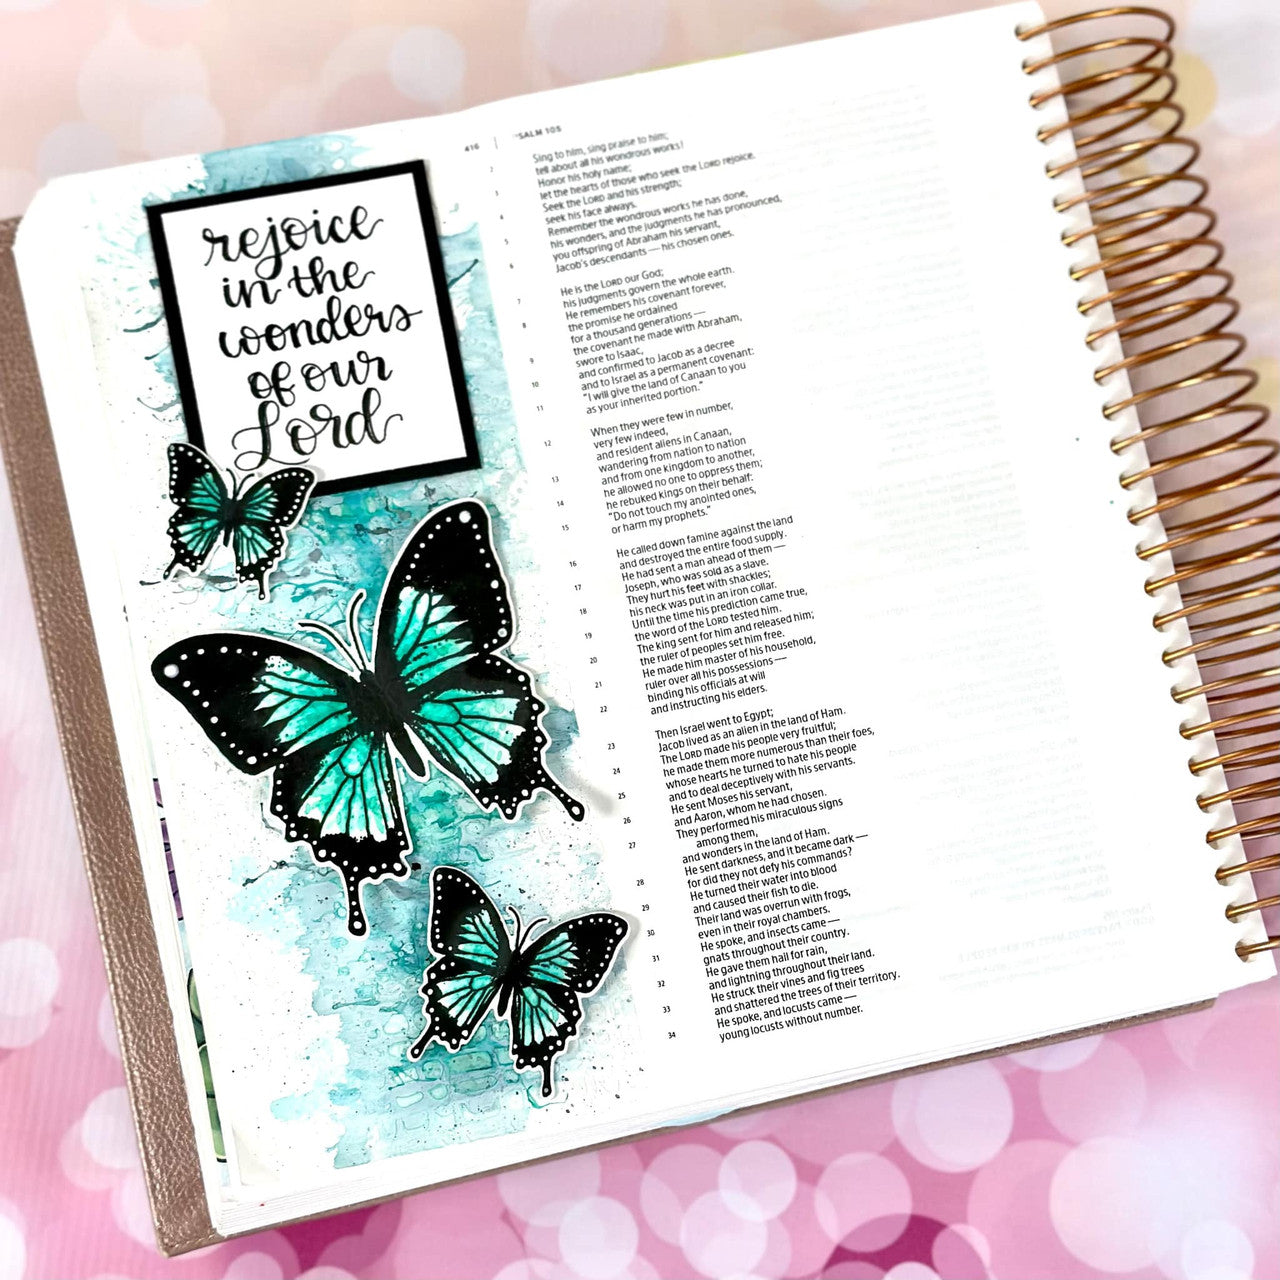 rejoice
in the
wonders
of our
Lord
416
PSALM 105
Sing to him, sing praise to him;
2 tell about all his wondrous works!
Honor his holy name;
3 let the hearts of those who seek the LORD rejoice.
Seek the LORD and his strength;
4 seek his face always.
Remember the wondrous works he has done,
5 his wonders, and the judgments he has pronounced,
you offspring of Abraham his servant,
6 Jacob's descendants — his chosen ones.
He is the LORD our God;
7 his judgments govern the whole earth.
He remembers his covenant forever,
8 the promise he ordained
for a thousand generations —
the covenant he made with Abraham,
9 swore to Isaac,
and confirmed to Jacob as a decree
10 and to Israel as a permanent covenant:
"I will give the land of Canaan to you
11 as your inherited portion."
When they were few in number,
12 very few indeed,
and resident aliens in Canaan,
wandering from nation to nation
13 and from one kingdom to another,
he allowed no one to oppress them;
14 he rebuked kings on their behalf:
"Do not touch my anointed ones,
15 or harm my prophets."
He called down famine against the land
16 and destroyed the entire food supply.
He had sent a man ahead of them —
17 Joseph, who was sold as a slave.
They hurt his feet with shackles;
18 his neck was put in an iron collar.
Until the time his prediction came true,
19 the word of the LORD tested him.
The king sent for him and released him;
20 the ruler of peoples set him free.
He made him master of his household,
21 ruler over all his possessions —
binding his officials at will
22 and instructing his elders.
Then Israel went to Egypt;
23 Jacob lived as an alien in the land of Ham.
The LORD made his people very fruitful;
24 he made them more numerous than their foes,
whose hearts he turned to hate his people
25 and to deal deceptively with his servants.
He sent Moses his servant,
26 and Aaron, whom he had chosen.
They performed his miraculous signs
among them,
27 and wonders in the land of Ham.
He sent darkness, and it became dark —
28 for did they not defy his commands?
He turned their water into blood
29 and caused their fish to die.
Their land was overrun with frogs,
30 even in their royal chambers.
He spoke, and insects came —
31 gnats throughout their country.
He gave them hail for rain,
32 and lightning throughout their land.
He struck their vines and fig trees
33 and shattered the trees of their territory.
He spoke, and locusts came —
34 young locusts without number.